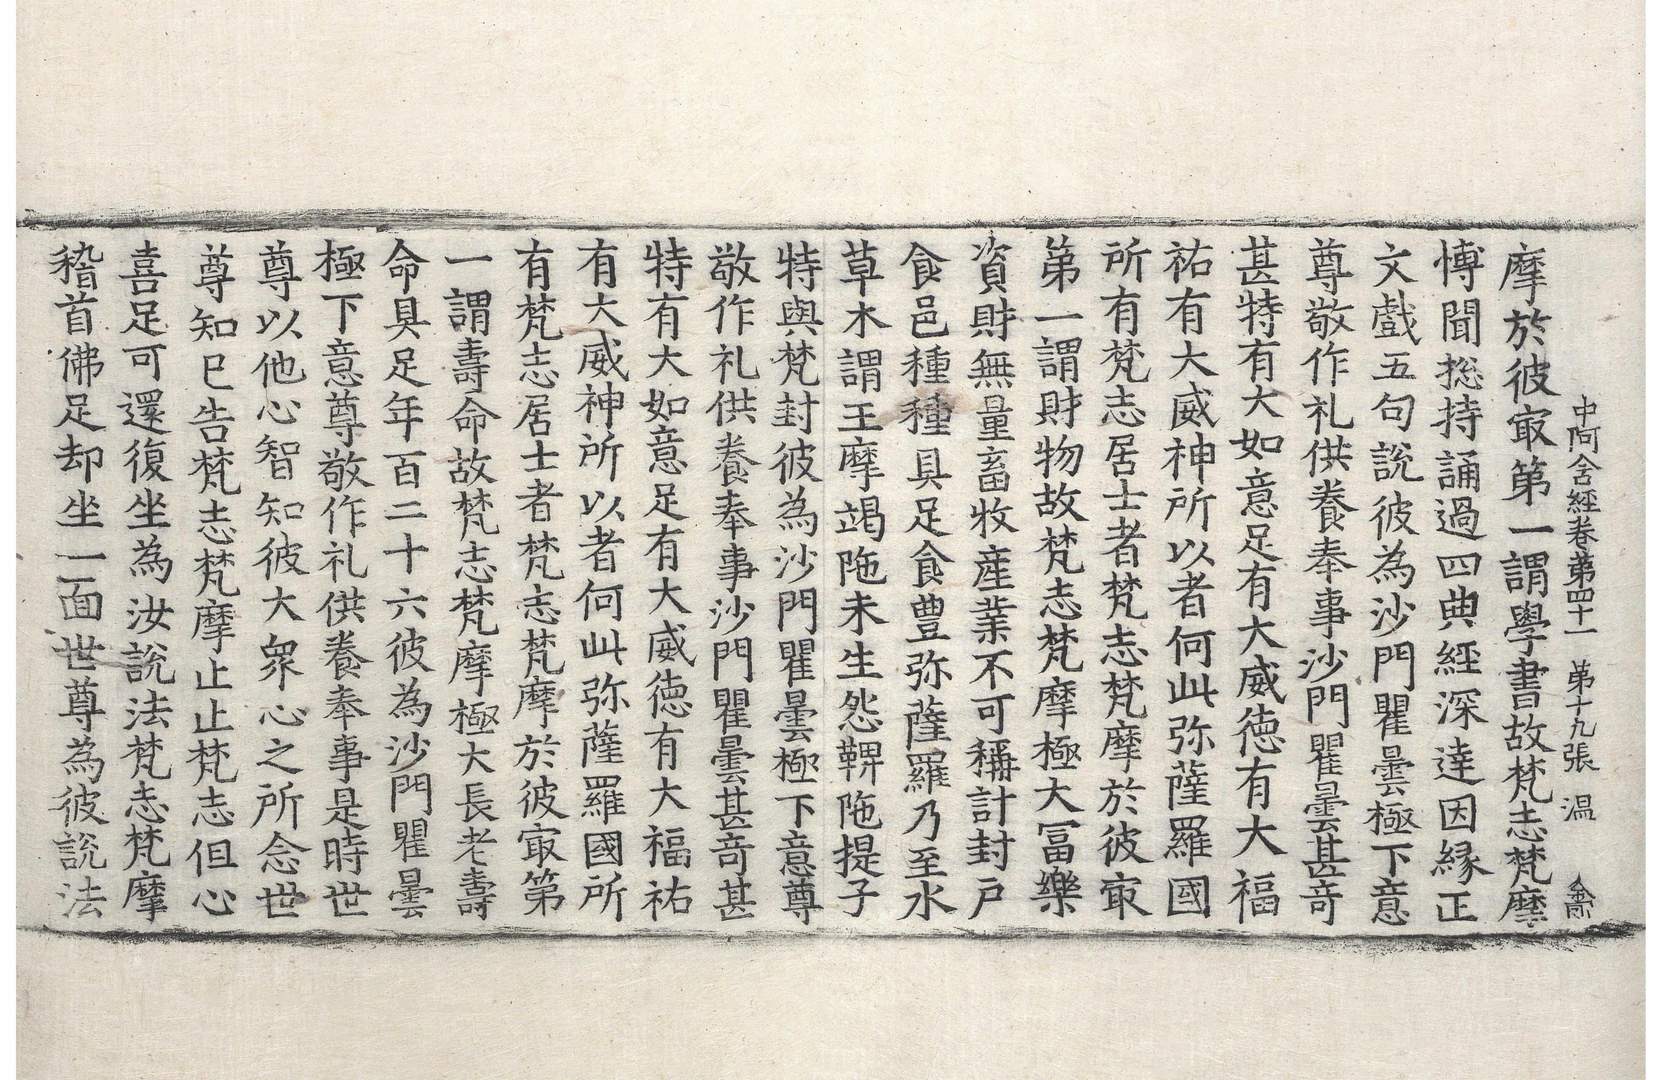 中阿含經卷第四十一 第十九張 温 龠
摩於彼㝡第一謂學書故梵志梵摩
愽聞揔持誦過四典經深達因縁正
文戲五句說彼為沙門瞿曇極下意
尊敬作礼供養奉事沙門瞿曇甚奇
甚特有大如意足有大威徳有大福
祐有大威神所以者何此弥薩羅國
所有梵志居士者梵志梵摩於彼㝡
第一謂財物故梵志梵摩極大冨樂
資財無量畜牧産業不可稱計封戶
食邑種種具足食豊弥薩羅乃至水
草木謂王摩竭陁未生怨鞞陁提子
特與梵封彼為沙門瞿曇極下意尊
敬作礼供養奉事沙門瞿曇甚奇甚
特有大如意足有大威徳有大福祐
有大威神所以者何此弥薩羅國所
有梵志居士者梵志梵摩於彼㝡第
一謂壽命故梵志梵摩極大長老壽
命具足年百二十六彼為沙門瞿曇
極下意尊敬作礼供養奉事是時世
尊以他心智知彼大衆心之所念世
尊知已告梵志梵摩止止梵志但心
喜足可還復坐為汝說法梵志梵摩
稽首佛足却坐一面世尊為彼說法